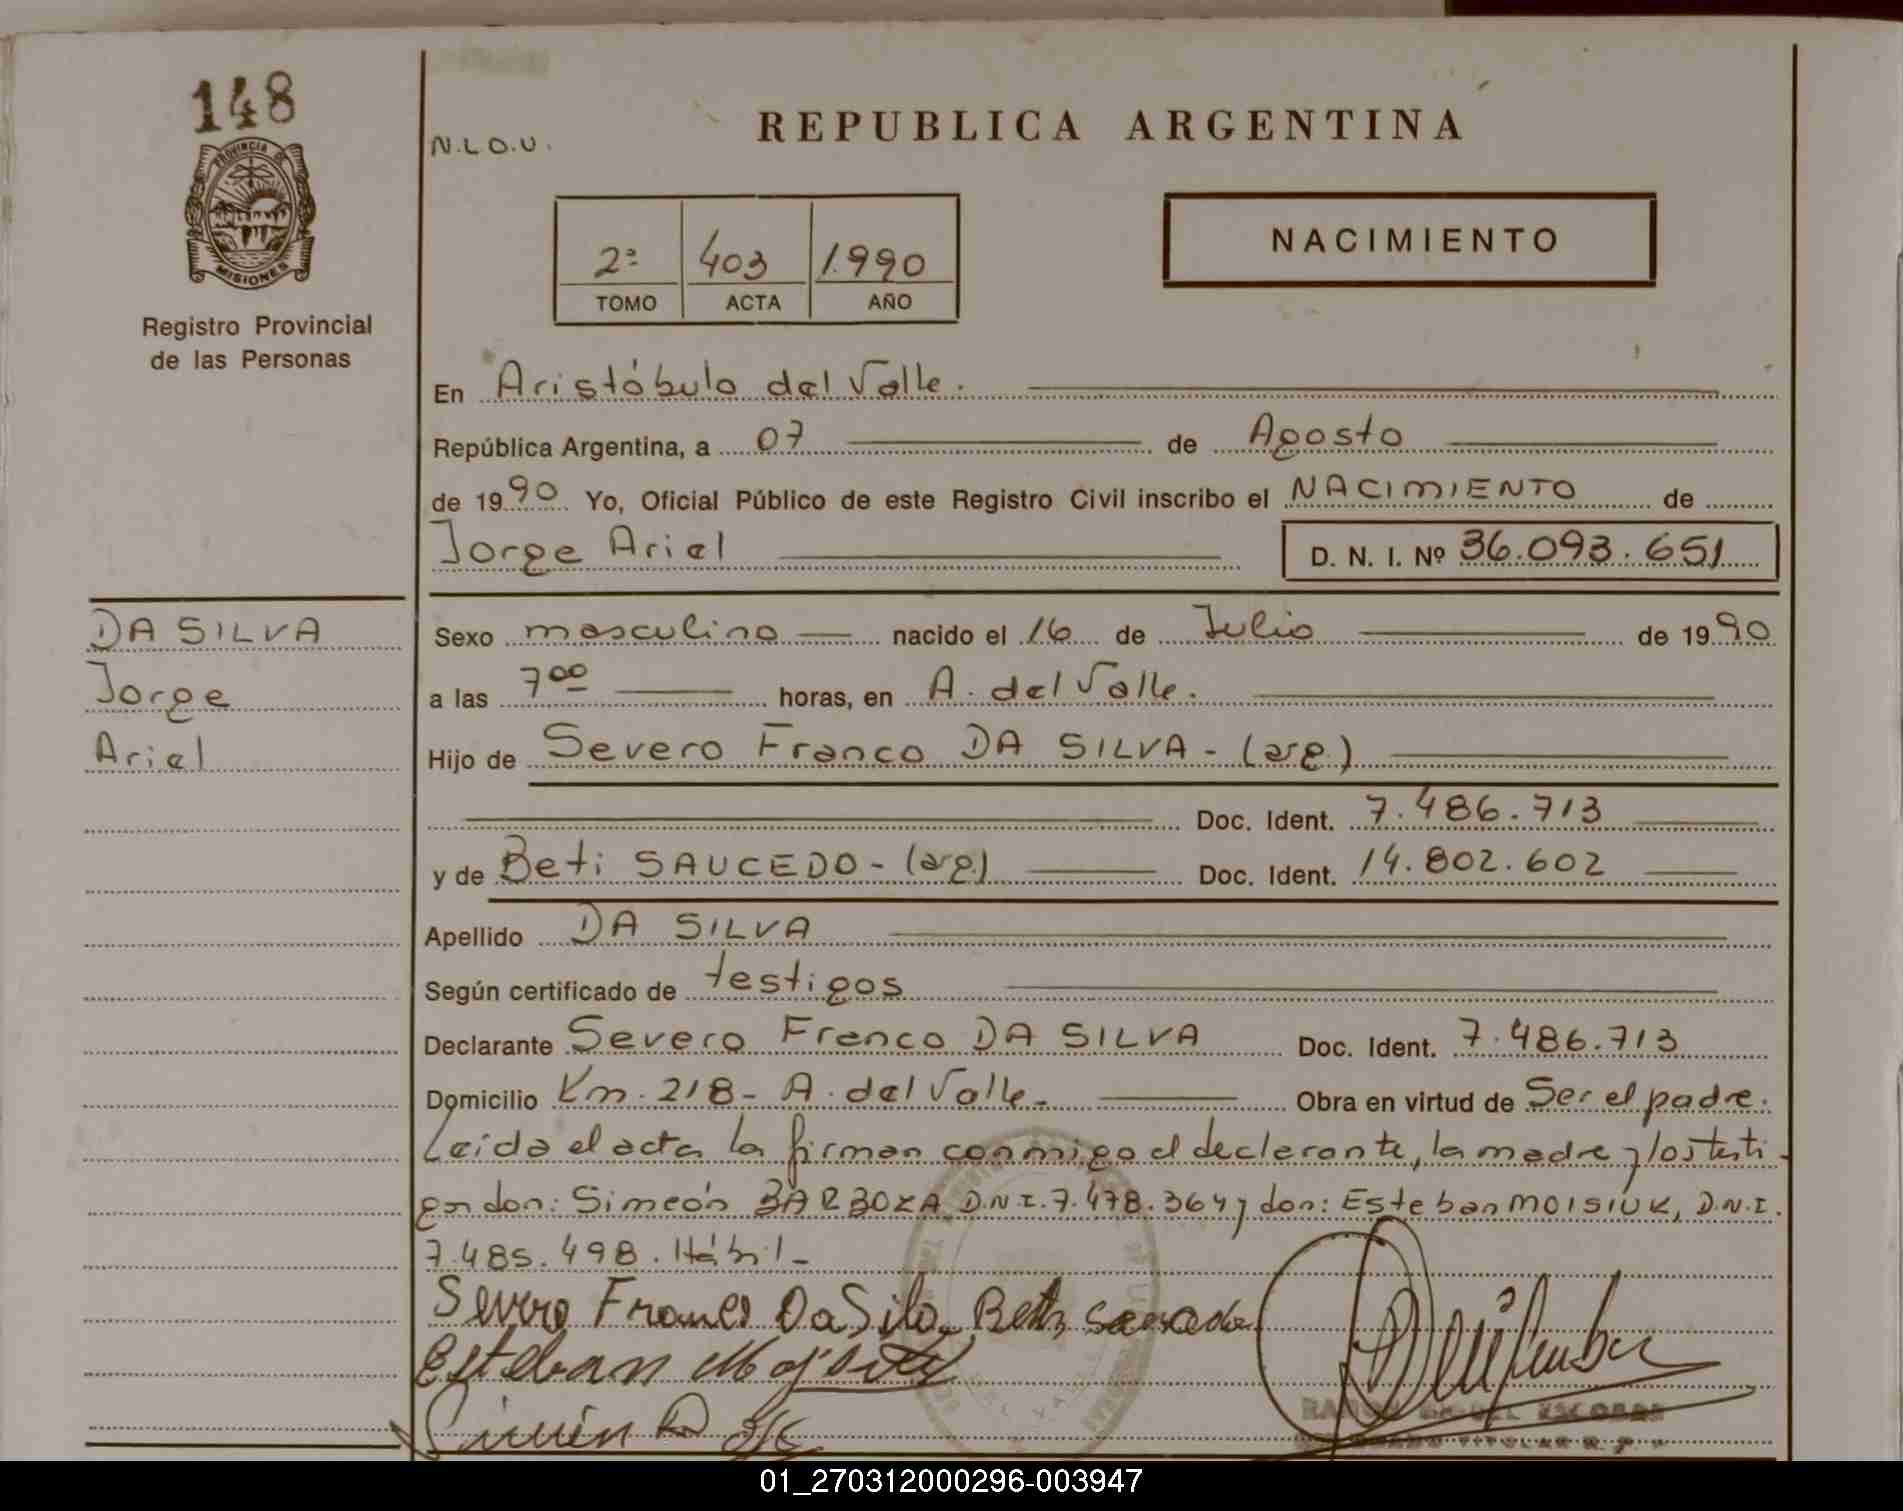 148
PROVINCIA DE
MISIONES
Registro Provincial
de las Personas
DA SILVA
Jorge
Ariel
N.L.O.U.
REPUBLICA ARGENTINA
2ª 403 1.990
TOMO ACTA AÑO
NACIMIENTO
En Aristóbulo del Valle.
República Argentina, a 07 de Agosto
de 1990 Yo, Oficial Público de este Registro Civil inscribo el NACIMIENTO de
Jorge Ariel D. N. I. Nº 36.093.651
Sexo masculino nacido el 16 de Julio de 1990
a las 7⁰⁰ horas, en A. del Valle.
Hijo de Severo Franco DA SILVA - (arg.)
Doc. Ident. 7.486.713
y de Beti SAUCEDO - (arg.) Doc. Ident. 14.802.602
Apellido DA SILVA
Según certificado de testigos
Declarante Severo Franco DA SILVA Doc. Ident. 7.486.713
Domicilio Km. 218 - A. del Valle. Obra en virtud de Ser el padre.
Leída el acta la firman conmigo el declarante, la madre y los testi-
gos don: Simeón BARBOZA D.N.I. 7.478.364 y don: Esteban MOISIUK, D.N.I.
7.485.498. Hábil -
Severo Franco Da Silva
Esteban
01_270312000296-003947